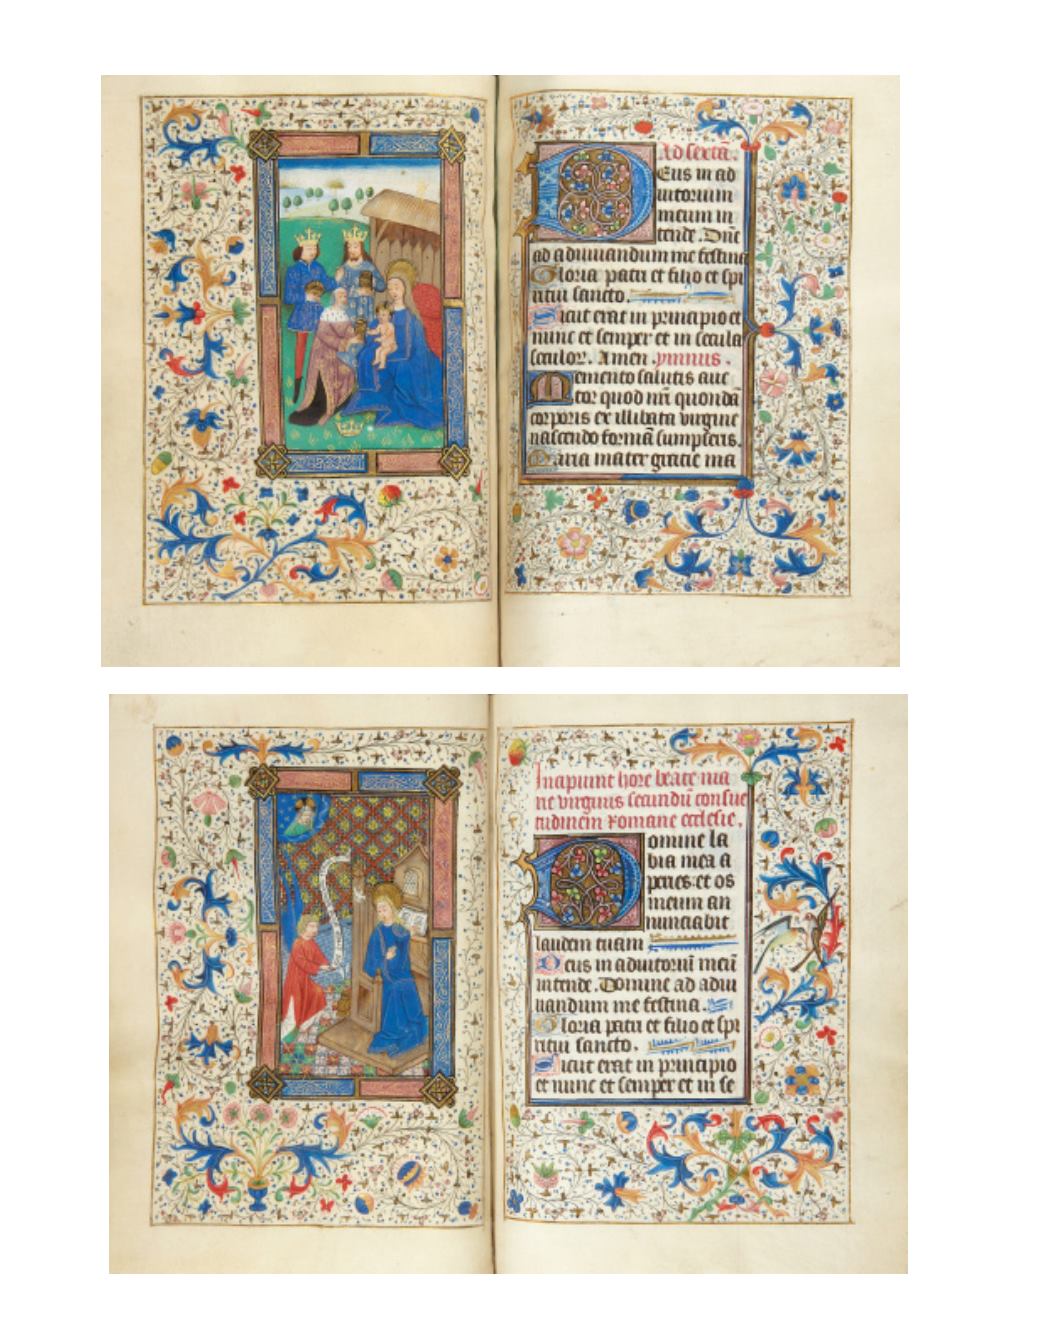 Ad sextā.
Eus in ad
iutorium
meum in
tende. Dñe
ad adiuuandum me festina
Gloria patri et filio et spi
ritui sancto.
Sicut erat in principio et
nunc et semper et in secula
seculor. Amen. ymnus.
Memento salutis auc
tor quod nr̄i quondā
corporis ex illibata virgine
nascendo formā sumpseris.
Maria mater gratie ma
Incipiunt hore beate ma
rie virginis secundū consue
tudinem Romane ecclesie.
Domine la
bia mea a
peries: et os
meum an
nunciabit
laudem tuam
Deus in adiutoriū meū
intende. Domine ad adiu
uandum me festina.
Gloria patri et filio et spi
ritui sancto.
Sicut erat in principio
et nunc et semper et in se